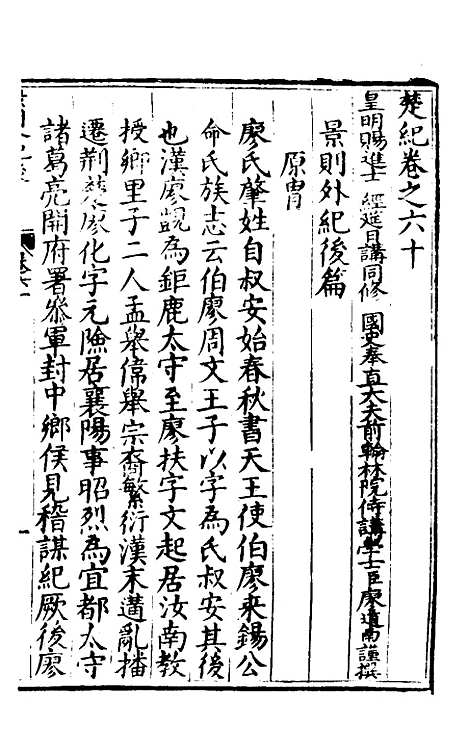 楚紀卷之六十
皇明賜進士 經筵日講同修 國史奉直大夫前翰林院侍講學士臣廖道南謹撰
景則外紀後篇
原冑
廖氏肇姓自叔安始春秋書天王使伯廖來錫公
命氏族志云伯廖周文王子以字為氏叔安其後
也漢廖覬為鉅鹿太守至廖扶字文起居汝南教
授鄉里子二人孟舉偉舉宗裔繁衍漢末遘亂播
遷荊廖化字元險居襄陽事昭烈為宜都太守
諸葛亮開府署叅軍封中鄉侯見稽謀紀厥後廖